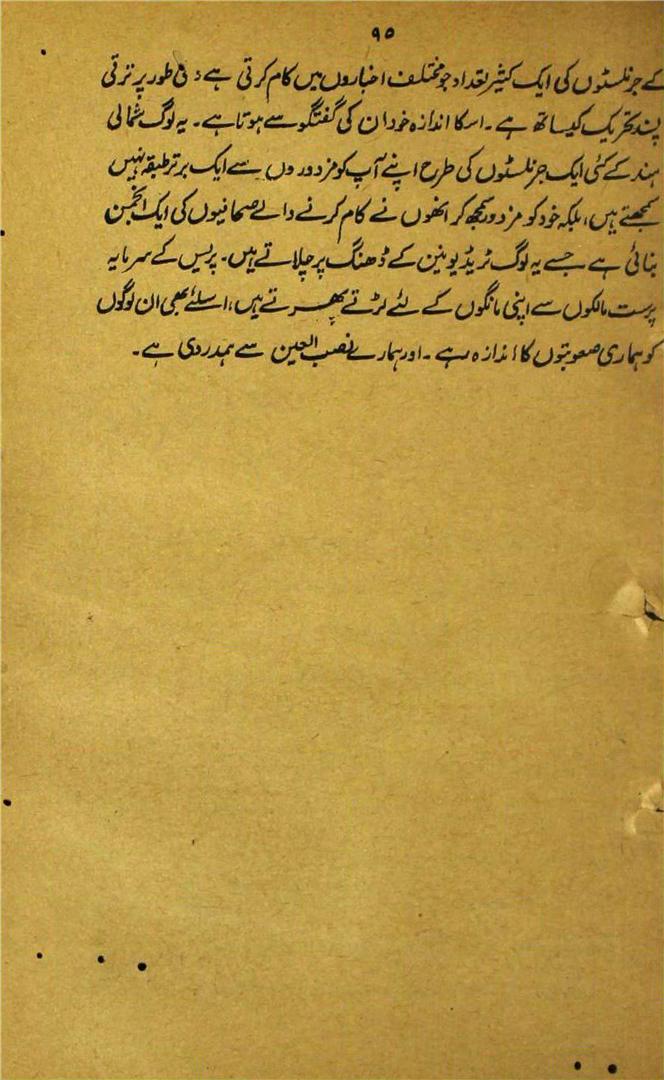 ۹۵
کے جرنلسٹوں کی ایک کثیر تعداد جو مختلف اخباروں میں کام کرتی ہے ذہنی طور پر ترقی
پسند تحریک کیساتھ ہے۔ اسکا اندازہ خود ان کی گفتگو سے ہوتا ہے۔ یہ لوگ شمالی
ہند کے کئی ایک جرنلسٹوں کی طرح اپنے آپ کو مزدوروں سے ایک برتر طبقہ نہیں
سمجھتے ہیں، بلکہ خود کو مزدور سمجھ کر انھوں نے کام کرنے والے صحافیوں کی ایک انجمن
بنائی ہے جسے یہ لوگ ٹریڈ یونین کے ڈھنگ پر چلاتے ہیں۔ پریس کے سرمایہ
پرست مالکوں سے اپنی مانگوں کے لئے لڑتے پھرتے ہیں، اسلئے بھی ان لوگوں
کو ہماری صعوبتوں کا اندازہ ہے۔ اور ہمارے نصب العین سے ہمدردی ہے۔